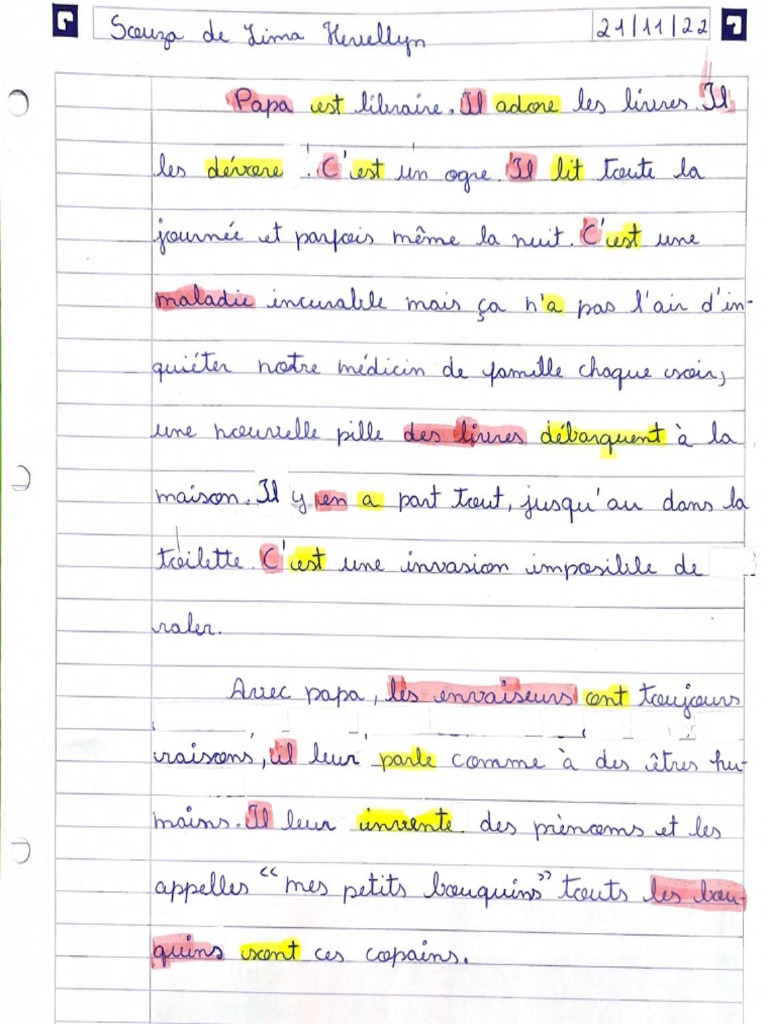 Souza de Lima Hevellyn 21/11/22
Papa est libraire. Il adore les livres. Il
les dévore. C'est un ogre. Il lit toute la
journée et parfois même la nuit. C'est une
maladie incurable mais ça n'a pas l'air d'in-
quiéter notre médicin de famille chaque soir,
une nouvelle pille des livres débarquent à la
maison. Il y en a part tout, jusqu'au dans la
toilette. C'est une invasion imposible de
raler.
Avec papa, les envaiseurs ont toujours
raisons, il leur parle comme à des êtres hu-
mains. Il leur invente des prènoms et les
appelles "mes petits bouquins" touts les bou-
quins sont ces copains.